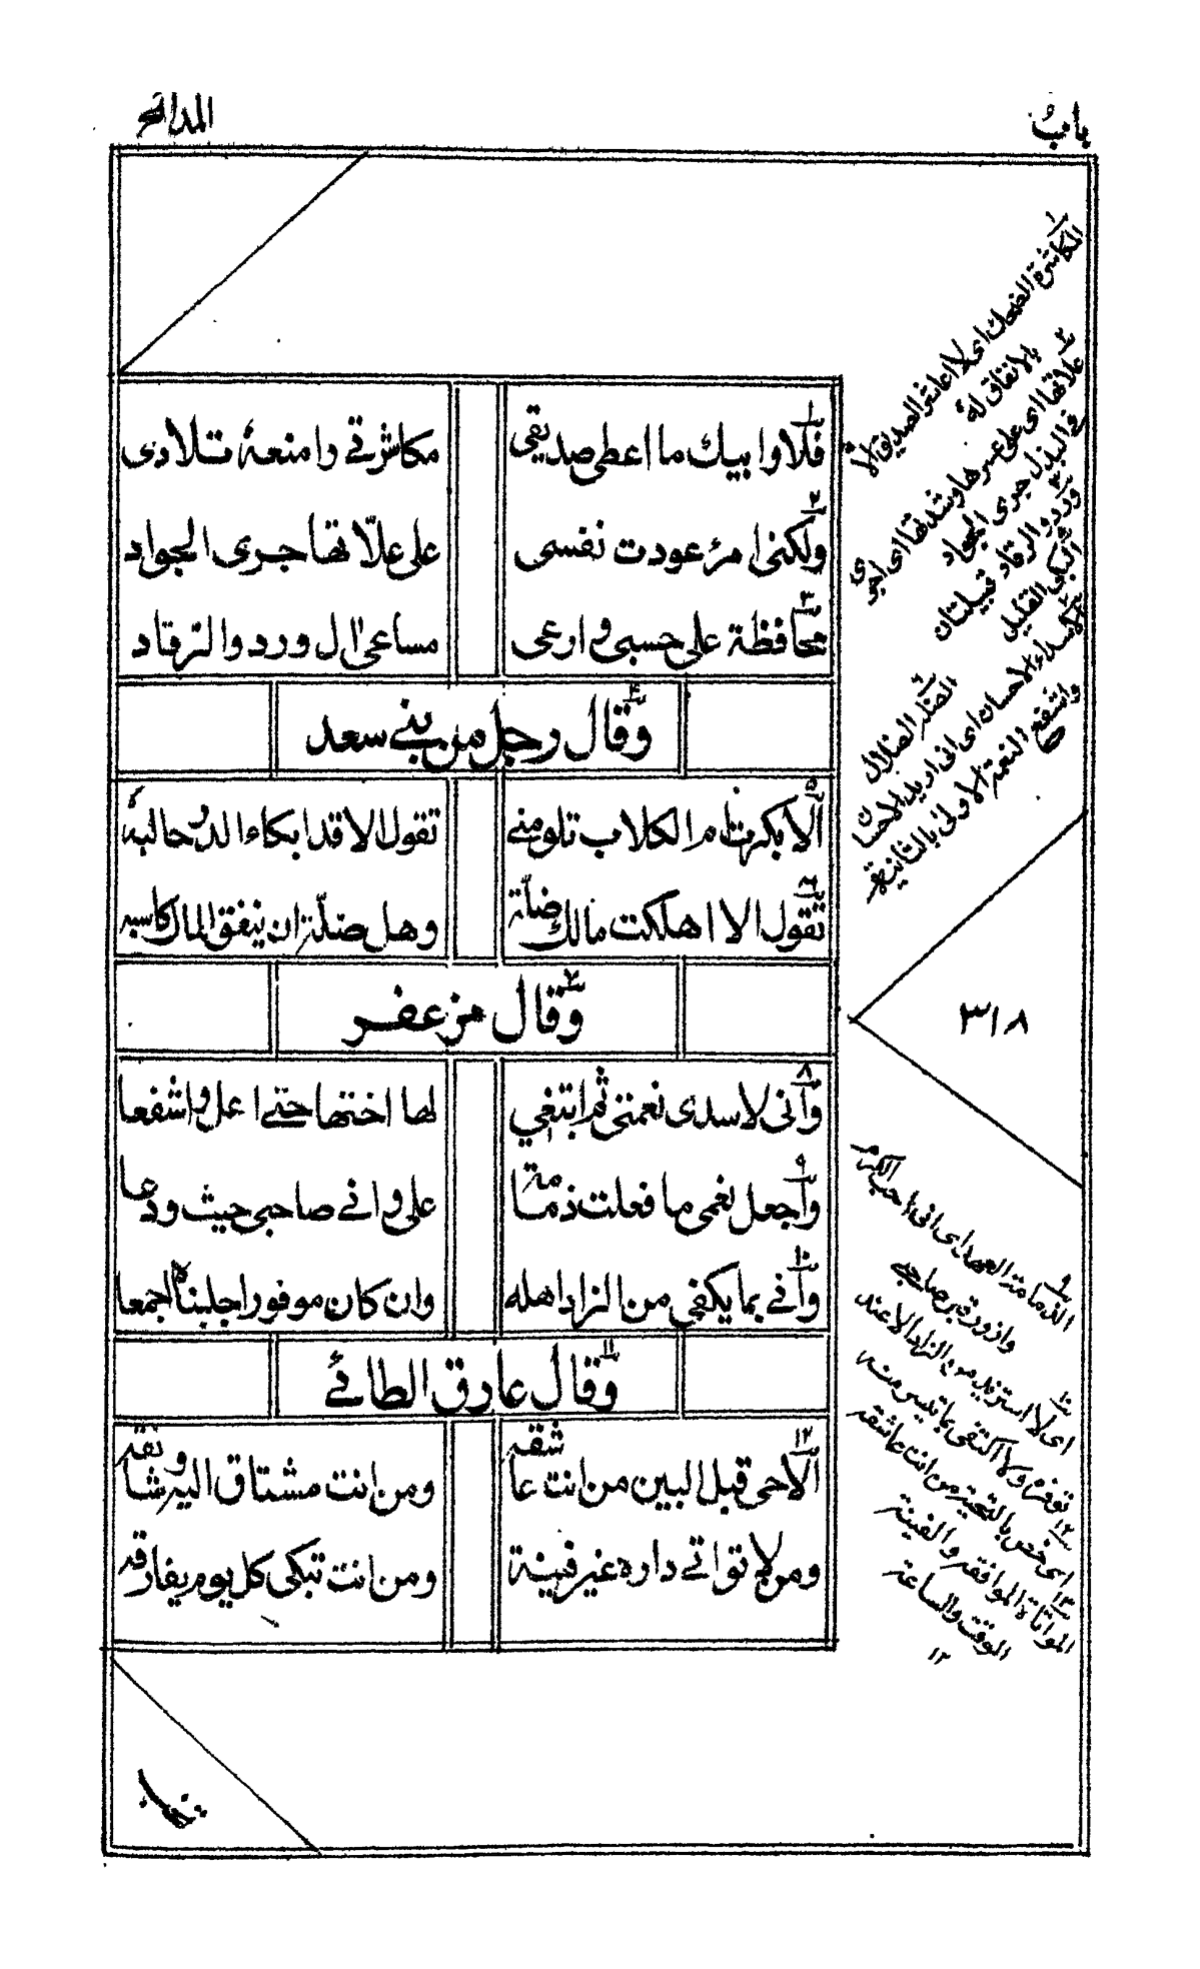 باب
المدائح
فلا وابيك ما اعطي صديقي
مكاشرتي وامنعه تلادي
ولكني امرؤ عودت نفسي
على علاتها جري الجواد
محافظة على حسبي وارعى
مساعي ال ورد والرقاد
وقال رجل من بني سعد
الا بكرت ام الكلاب تلومني
تقول الا قد ابكاء الدر حالبه
تقول الا اهلكت مالك ضلة
وهل ضلة ان ينفق المال كاسبه
وقال مزعفر
واني لاسدي نعمتي ثم ابتغي
لها اختها حتى اعل واشفعا
واجعل نعمى ما فعلت ذمامة
على واني صاحبي حيث ودعا
واني بما يكفي من الزاد اهله
وان كان موفورا جلبناه اجمعا
وقال عارق الطائي
الا حي قبل البين من انت عاشقه
ومن انت مشتاق اليه وشائقه
ومن لا تواتي داره غير فينة
ومن انت تبكي كل يوم يفارقه
المكاشرة الضحك اي لا اعاشر الصديق الا
بالانفاق له
علاتها اي على عسرها وشدتها اي اجري
في البذل جري الجواد
ورد والرقاد قبيلتان
البكي القليل
الضلة الضلال
الاسداء الاحسان اي اني اريد الاحسان
واشفع النعمة الاولى بالثانية
٣١٨
الذمامة العهد اي اني احب الكرم
وازور قبر صاحبي
اي لا استزيد من الزاد الا عند
توفره ولا اكتفي بما تيسر منه
اي خص بالتحية من انت عاشقه
المواتاة الموافقة والفينة
الوقت والساعة
١٢